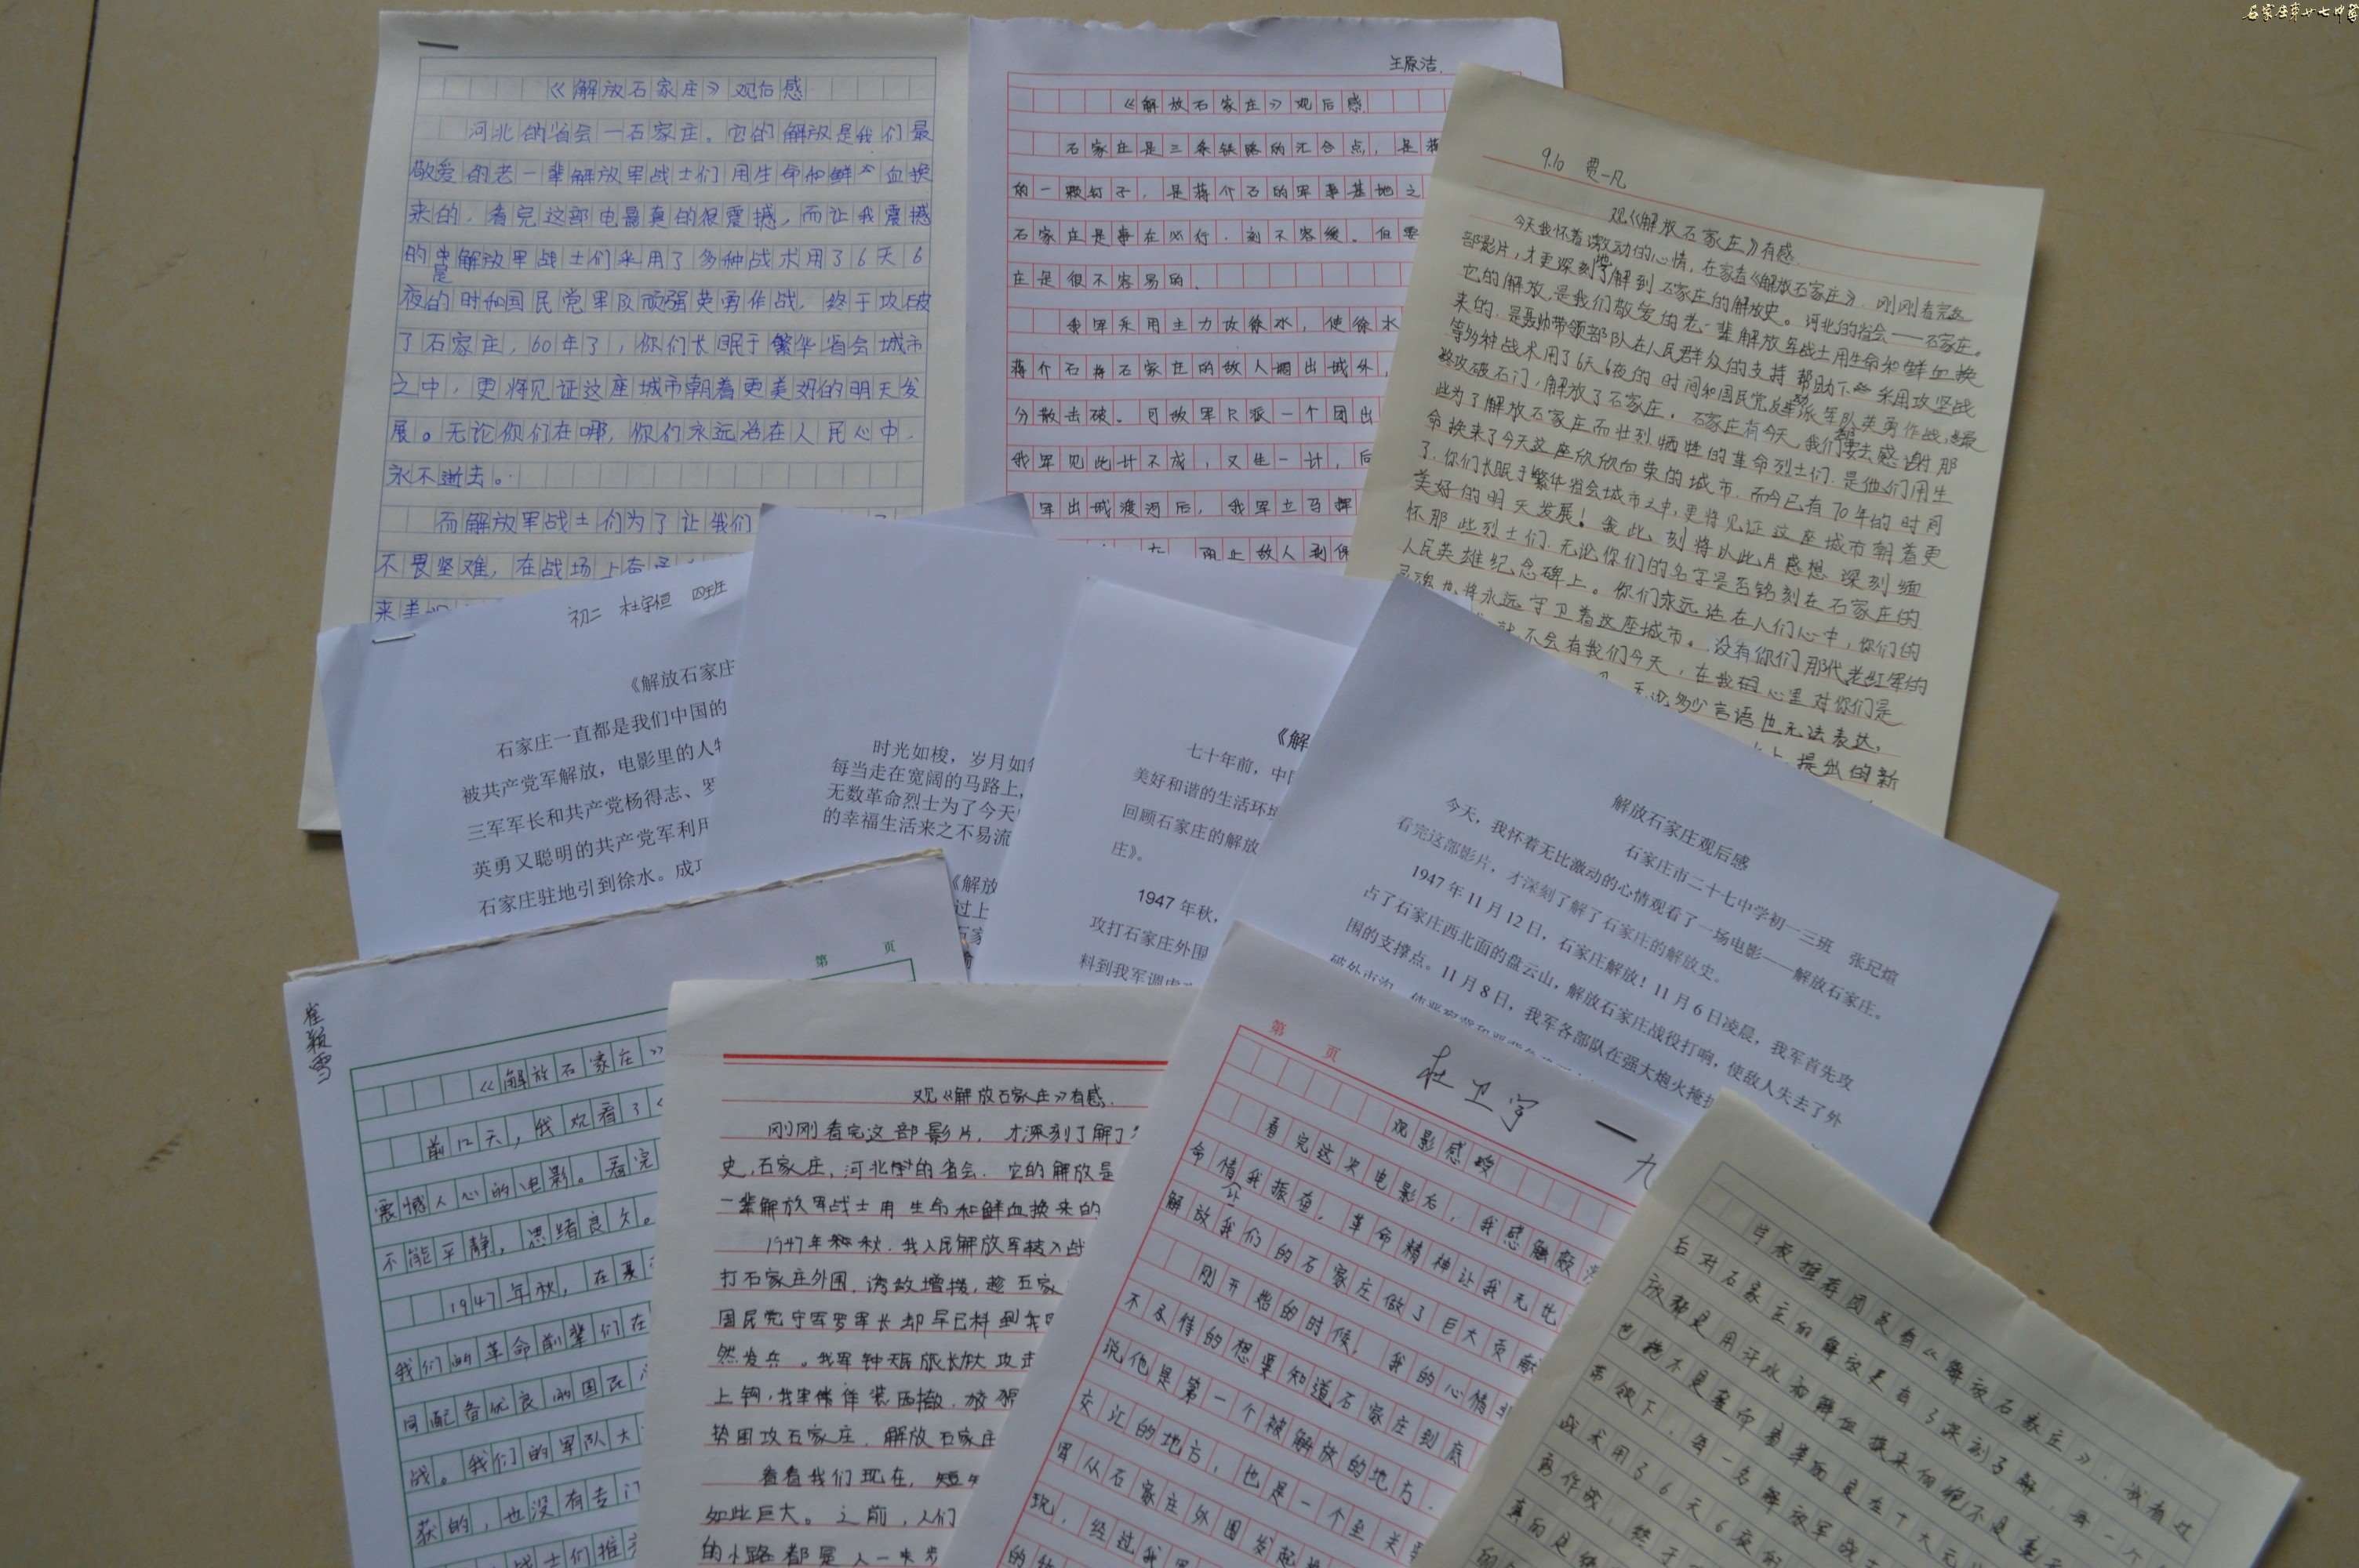 石家庄第廿七中学
《解放石家庄》观后感
河北的省会一石家庄。它的解放是我们最
敬爱的老一辈解放军战士们用生命和鲜血换
来的，看完这部电影真的很震撼，而让我震撼
的是解放军战士们采用了多种战术用了6天6
夜的时和国民党军队顽强英勇作战，终于攻破
了石家庄，60年了，你们长眠于繁华省会城市
之中，更将见证这座城市朝着更美好的明天发
展。无论你们在哪，你们永远活在人民心中，
永不逝去。
而解放军战士们为了让我们
不畏坚难，在战场上奋
王原洁
《解放石家庄》观后感
石家庄是三条铁路的汇合点，是
的一颗钉子，是蒋介石的军事基地之
石家庄是事在必行，刻不容缓。但要
庄是很不容易的，
我军采用主力攻徐水，使徐水
蒋介石将石家庄的敌人调出城外，
分散击破。可敌军只派一个团出
我军见此计不成，又生一计，
军出城渡河后，我军立马
9.10 贾一凡
观《解放石家庄》有感
今天我怀着激动的心情，在家看《解放石家庄》，刚刚看完这
部影片，才更深刻地了解到石家庄的解放史。河北的省会——石家庄。
它的解放，是我们敬爱的老一辈解放军战士用生命和鲜血换
来的，是聂帅带领部队在人民群众的支持帮助下采用攻坚战
等多种战术用了6天6夜的时间和国民党反动派军队英勇作战，最
终攻破石门，解放了石家庄。石家庄有今天，我们要去感谢那
些为了解放石家庄而壮烈牺牲的革命烈士们，是他们用生
命换来了今天这座欣欣向荣的城市，而今已有70年的时间
了，你们长眠于繁华省会城市之中，更将见证这座城市朝着更
美好的明天发展！我此刻将以此片感想深刻缅
怀那些烈士们，无论你们的名字是否铭刻在石家庄的
人民英雄纪念碑上。你们永远活在人们心中，你们的
将永远守卫着这座城市。没有你们那代老红军的
就不会有我们今天，在我的心里对你们是
无论多少言语也无法表达，
提出的新
初二 杜宇恒 四班
《解放石家庄
石家庄一直都是我们中国的
被共产党军解放，电影里的人物
三军军长和共产党杨得志、罗
英勇又聪明的共产党军利用
石家庄驻地引到徐水。成功
时光如梭，岁月如
每当走在宽阔的马路上，
无数革命烈士为了今天
的幸福生活来之不易流
《解放
过上
石家
《解
七十年前，中国
美好和谐的生活环境
回顾石家庄的解放
庄》。
1947年秋，
攻打石家庄外围
料到我军调虎
解放石家庄观后感
石家庄市二十七中学初一三班 张玘煊
今天，我怀着无比激动的心情观看了一场电影——解放石家庄。
看完这部影片，才深刻了解了石家庄的解放史。
1947年11月12日，石家庄解放！11月6日凌晨，我军首先攻
占了石家庄西北面的盘云山，解放石家庄战役打响，使敌人失去了外
围的支撑点。11月8日，我军各部队在强大炮火掩护
破外市沟，使
崔颖雪
第 页
《解放石家庄》
前12天，我观看了
震憾人心的电影。看完
不能平静，思绪良久。
1947年秋，在聂
我们的革命前辈们在
同配备优良的国民
战。我们的军队大
获的，也没有专门
战士们推
观《解放石家庄》有感.
刚刚看完这部影片，才深刻了解了
史，石家庄，河北的省会，它的解放是
一辈解放军战士用生命和鲜血换来的
1947年秋，我人民解放军转入战
打石家庄外围，诱敌增援，趁石家
国民党守军罗军长却早已料到我
然发兵。我军钟天后旅长扩大攻击
上钩，我军佯装西撤，放
势围攻石家庄，解放石家庄
看看我们现在，短
如此巨大。之前，人们
的小路都是人一步
第 页
杜卫宇 一九
观影感
看完这次电影后，我感触颇
命情令我振奋，革命精神让我无比
解放我们的石家庄做了巨大贡献
刚开始的时候，我的心情
不及待的想要知道石家庄到底
说他是第一个被解放的地方，
交汇的地方，也是一个至关
军从石家庄外围发起
现，经过我军
学校推荐团员看《解放石家庄》，我看过
后对石家庄的解放更有了深刻了解，每一个
放都是用汗水和鲜血换来的绝不是
也绝不是
带领下，每一名解放军战士
战术用了6天6夜的
勇作战，终于
真的是